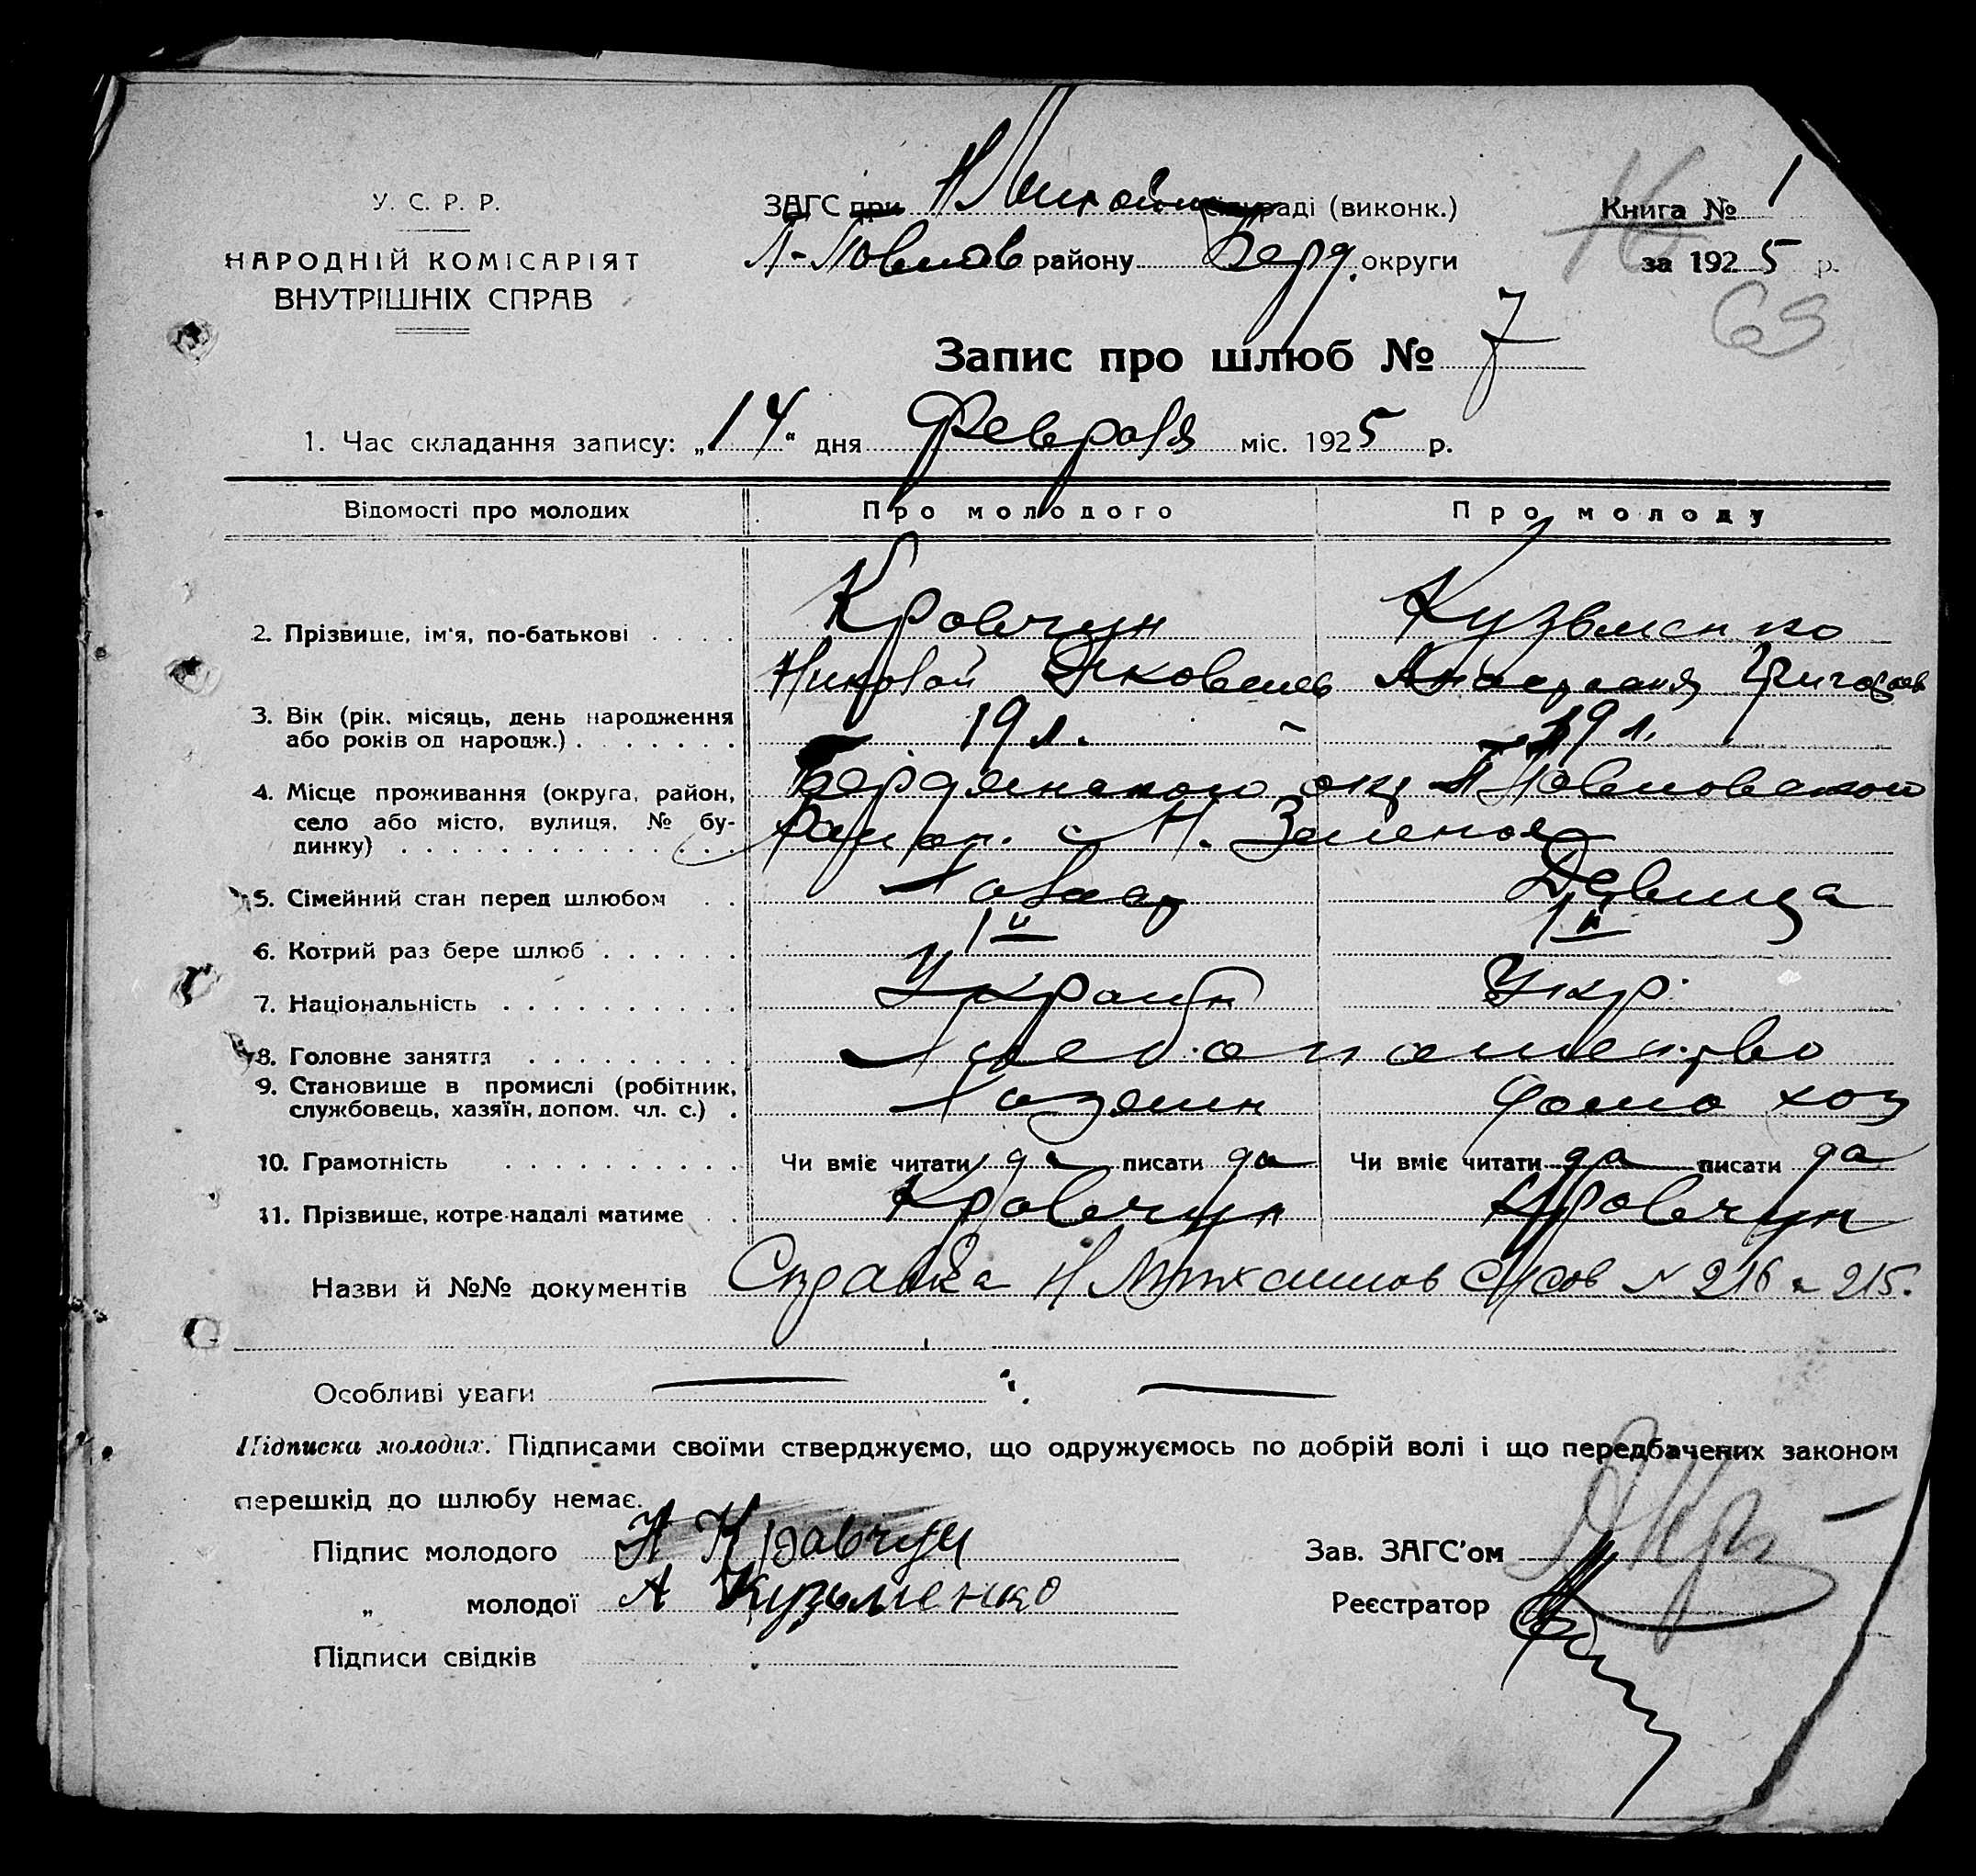 У. С. Р. Р.
НАРОДНІЙ КОМІСАРІЯТ
ВНУТРІШНІХ СПРАВ
ЗАГС при раді (виконк.)
району Берд. округи
Книга № 1
за 1925 р.
63
Запис про шлюб № 7
1. Час складання запису: „14“ дня Февраля міс. 1925 р.
Відомості про молодих Про молодого Про молоду
2. Прізвище, ім'я, по-батькові Кравчун Кузьменко
Николай Яковлев Анастасия Григорьев
3. Вік (рік, місяць, день народження
або років од народж.) 19 л. 19 л.
4. Місце проживання (округа, район,
село або місто, вулиця, № бу-
динку)
Бердянского окр
район. с Н. Зеленое
5. Сімейний стан перед шлюбом Холост Девица
6. Котрий раз бере шлюб 1й 1й
7. Національність Украин Укр.
8. Головне заняття Хлебопашество
9. Становище в промислі (робітник,
службовець, хазяїн, допом. чл. с.) Хозяин домо хоз
10. Грамотність Чи вміє читати да писати да Чи вміє читати да писати да
11. Прізвище, котре надалі матиме Кравчун Кравчун
Назви й №№ документів Справка № 216 и 215.
Особливі уваги
Підписка молодих. Підписами своїми стверджуємо, що одружуємось по добрій волі і що передбачених законом
перешкід до шлюбу немає.
Підпис молодого Н Кравчун
„ молодої А Кузьменко
Підписи свідків
Зав. ЗАГС'ом
Реєстратор